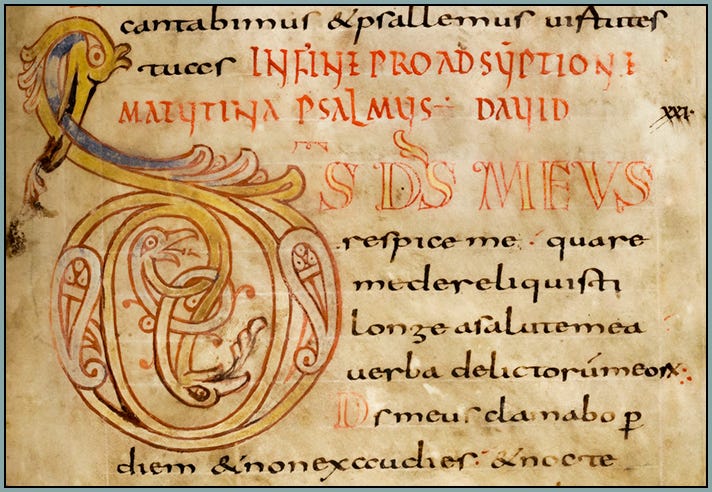 cantabimus & psallemus uirtutes
tuas INFINE PRO ADSŪPTIONE
MATUTINA PSALMUS DAUID XXI·
D̄S D̄S MEUS
respice me · quare
me dereliquisti
longe a salute mea
uerba delictorū meorꝝ:
D̄s meus clamabo ꝑ
diem & non exaudies · & nocte